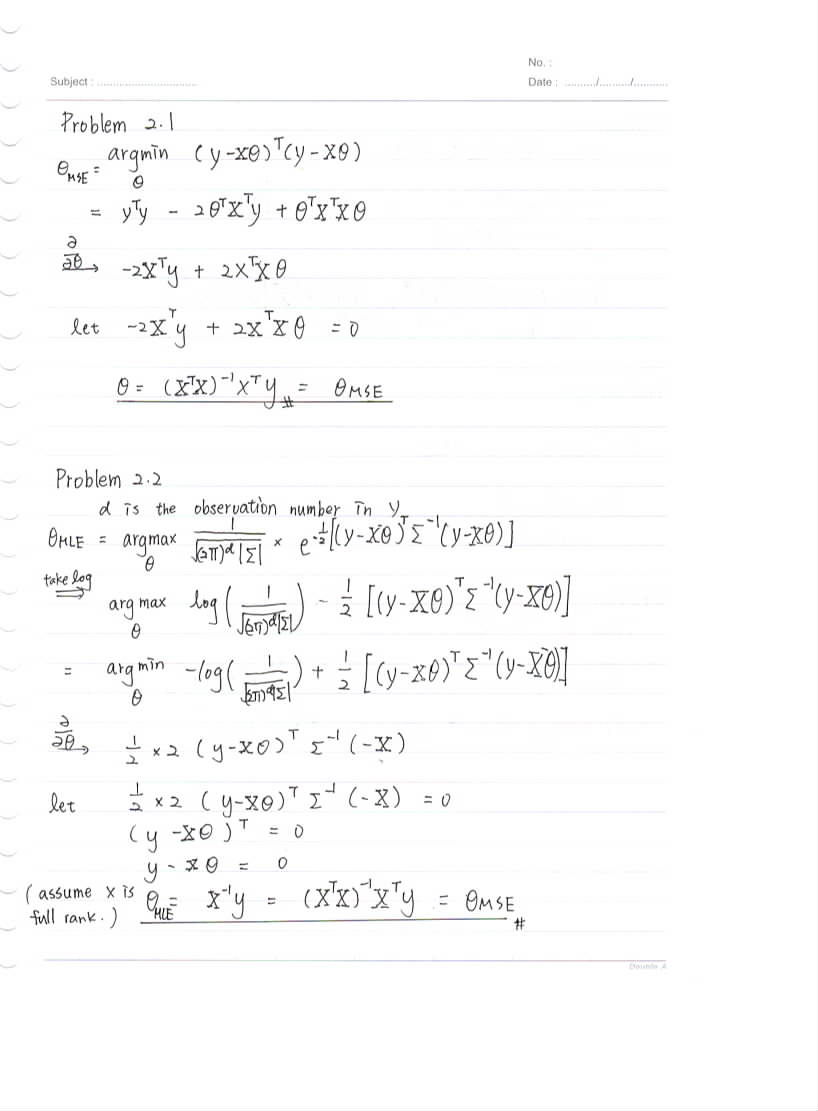 No. :
Subject : ..............................
Date : ........../........../...........
Problem 2.1
θ_MSE = argmin_θ (y-Xθ)ᵀ(y-Xθ)
= yᵀy - 2θᵀXᵀy + θᵀXᵀXθ
∂/∂θ → -2Xᵀy + 2XᵀXθ
let -2Xᵀy + 2XᵀXθ = 0
θ = (XᵀX)⁻¹Xᵀy # = θ_MSE
Problem 2.2
d is the observation number in y
θ_MLE = argmax_θ 1/√((2π)ᵈ|Σ|) × e^{-1/2[(y-Xθ)ᵀΣ⁻¹(y-Xθ)]}
take log ⟹ argmax_θ log(1/√((2π)ᵈ|Σ|)) - 1/2 [(y-Xθ)ᵀΣ⁻¹(y-Xθ)]
= argmin_θ -log(1/√((2π)ᵈ|Σ|)) + 1/2 [(y-Xθ)ᵀΣ⁻¹(y-Xθ)]
∂/∂θ → 1/2 × 2 (y-Xθ)ᵀ Σ⁻¹ (-X)
let 1/2 × 2 (y-Xθ)ᵀ Σ⁻¹ (-X) = 0
(y-Xθ)ᵀ = 0
y - Xθ = 0
(assume X is full rank.) θ_MLE = X⁻¹y = (XᵀX)⁻¹Xᵀy = θ_MSE #
Double A